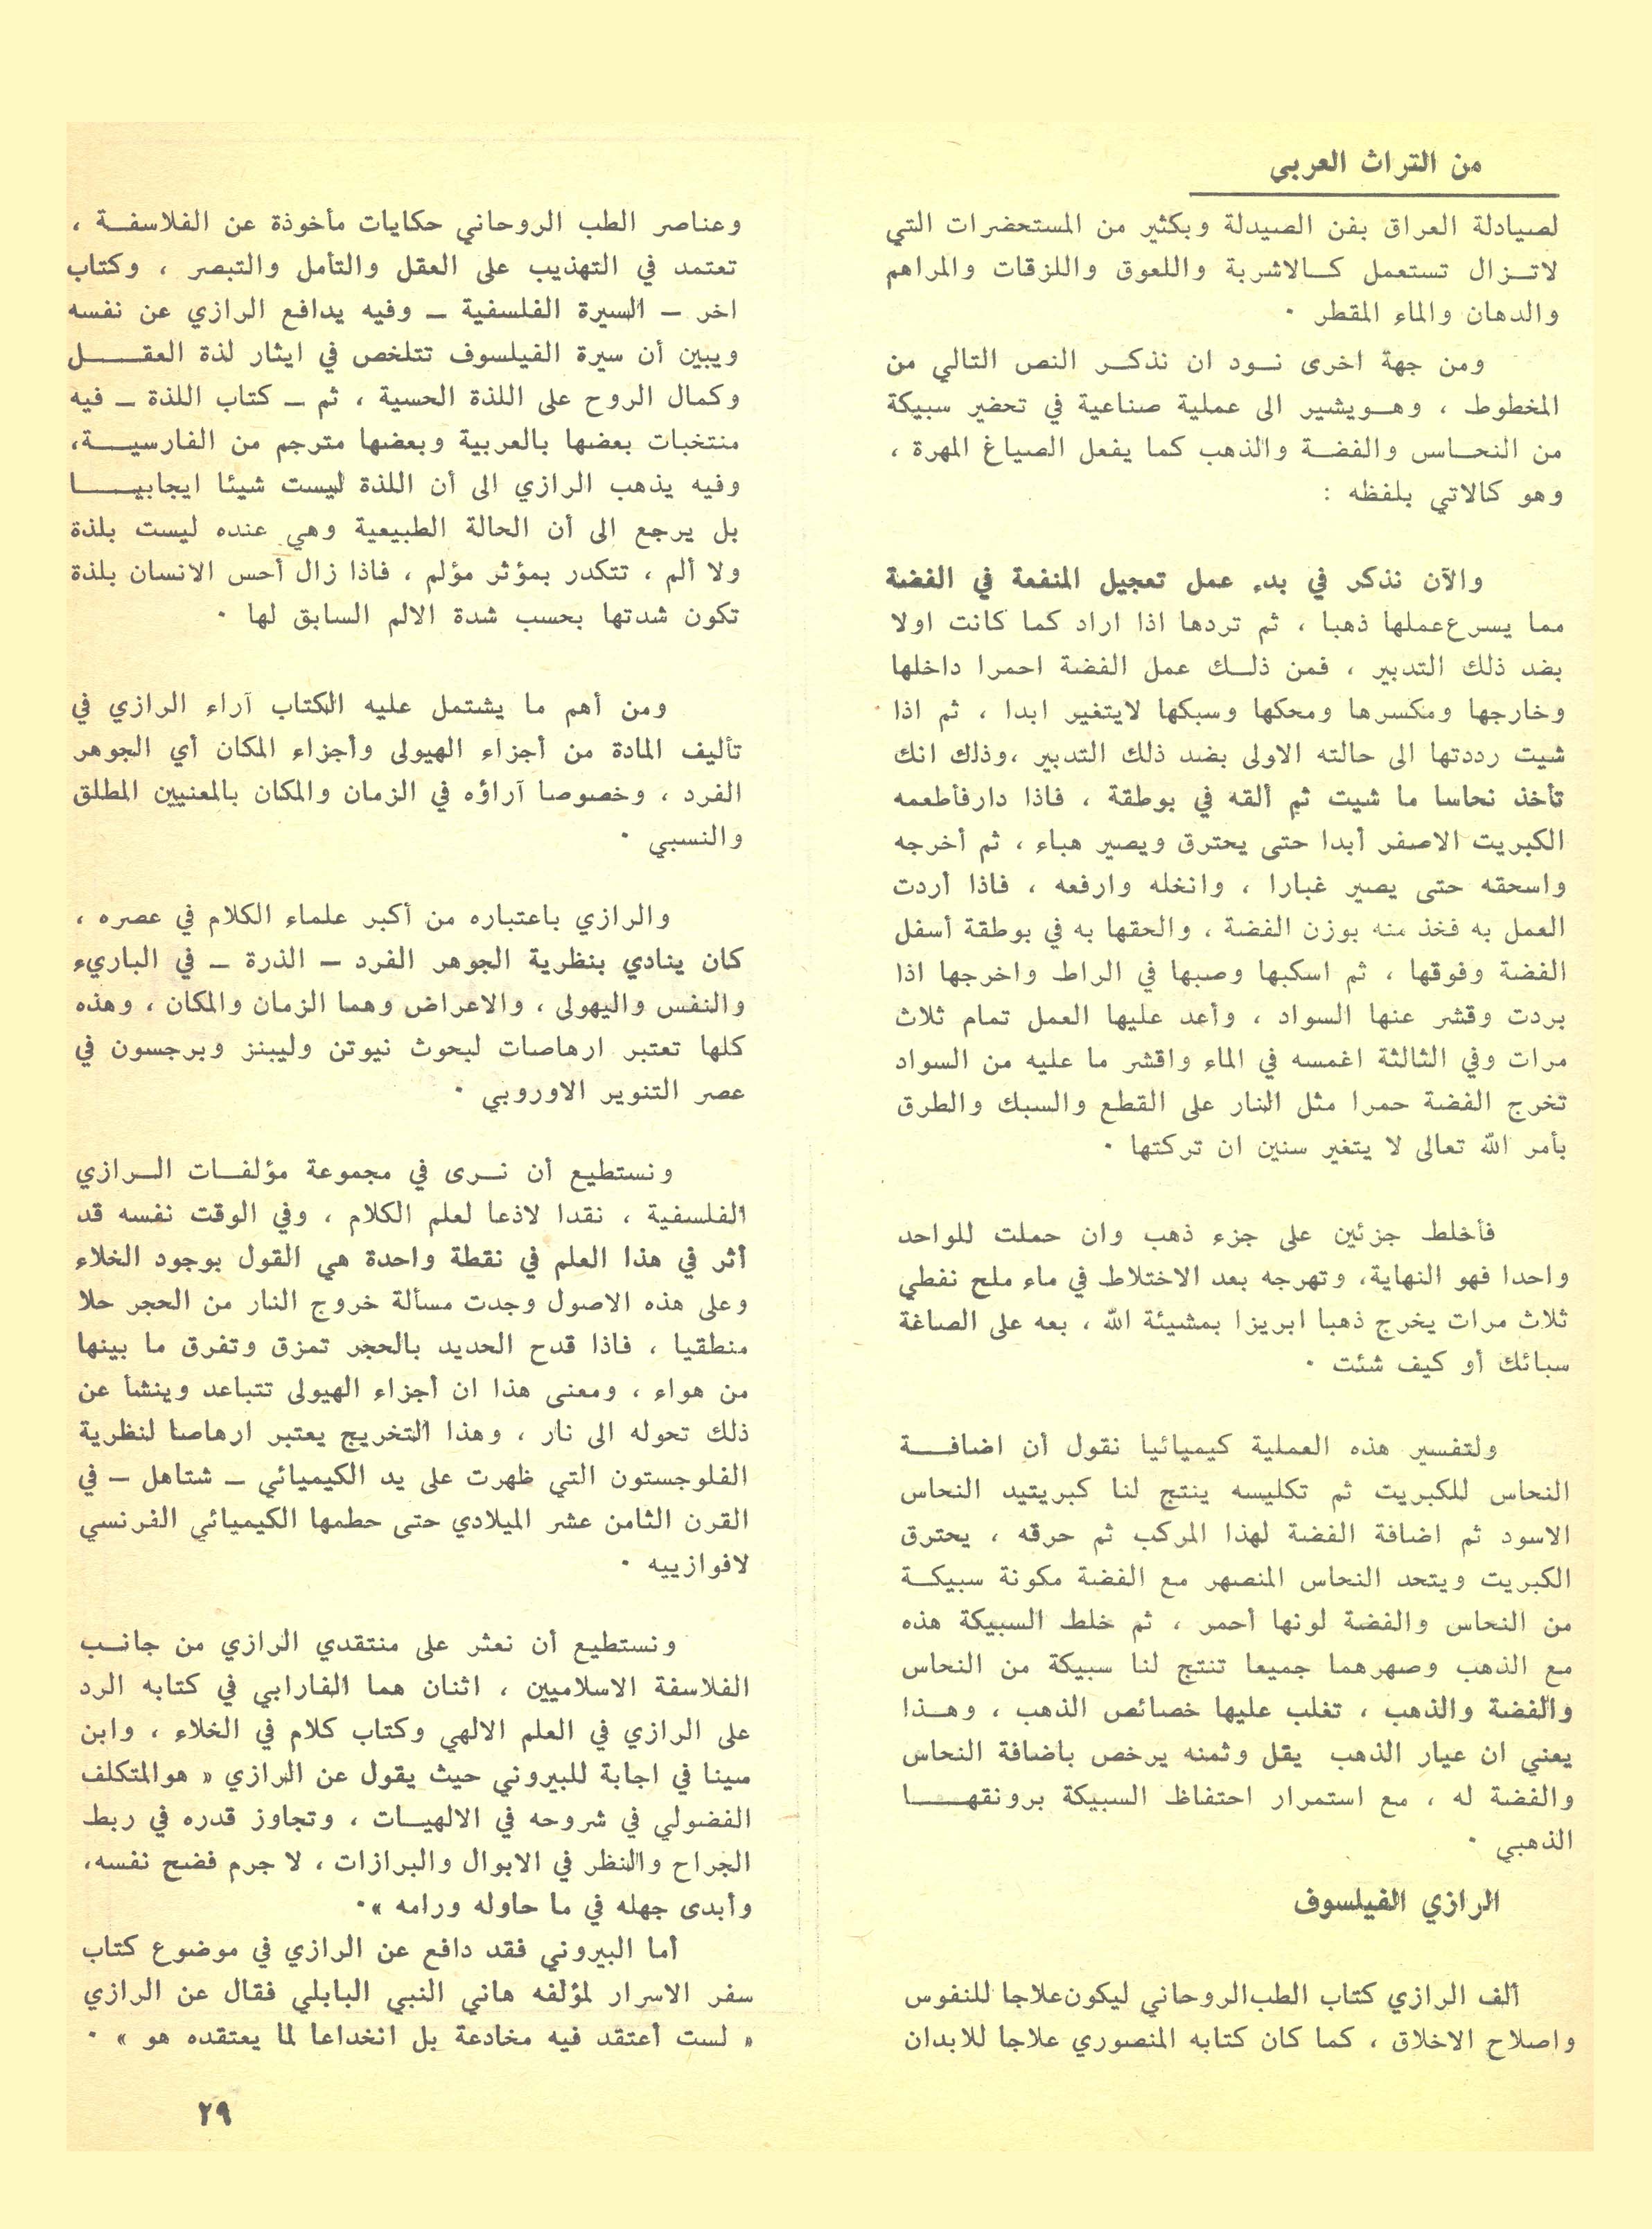 من التراث العربي
لصيادلة العراق بفن الصيدلة وبكثير من المستحضرات التي
لاتزال تستعمل كالاشربة واللعوق واللزقات والمراهم
والدهان والماء المقطر ٠
ومن جهة اخرى نود ان نذكر النص التالي من
المخطوط ، وهويشير الى عملية صناعية في تحضير سبيكة
من النحاس والفضة والذهب كما يفعل الصياغ المهرة ،
وهو كالاتي بلفظه :
والآن نذكر في بدء عمل تعجيل المنفعة في الفضة
مما يسرع عملها ذهبا ، ثم تردها اذا اراد كما كانت اولا
بضد ذلك التدبير ، فمن ذلك عمل الفضة احمرا داخلها
وخارجها ومكسرها ومحكها وسبكها لايتغير ابدا ، ثم اذا
شيت رددتها الى حالته الاولى بضد ذلك التدبير ،وذلك انك
تأخذ نحاسا ما شيت ثم ألقه في بوطقة ، فاذا دارفأطعمه
الكبريت الاصفر أبدا حتى يحترق ويصير هباء ، ثم أخرجه
واسحقه حتى يصير غبارا ، وانخله وارفعه ، فاذا أردت
العمل به فخذ منه بوزن الفضة ، والحقها به في بوطقة أسفل
الفضة وفوقها ، ثم اسكبها وصبها في الراط واخرجها اذا
بردت وقشر عنها السواد ، وأعد عليها العمل تمام ثلاث
مرات وفي الثالثة اغمسه في الماء واقشر ما عليه من السواد
تخرج الفضة حمرا مثل النار على القطع والسبك والطرق
بأمر الله تعالى لا يتغير سنين ان تركتها ٠
فأخلط جزئين على جزء ذهب وان حملت للواحد
واحدا فهو النهاية، وتهرجه بعد الاختلاط في ماء ملح نفطي
ثلاث مرات يخرج ذهبا ابريزا بمشيئة الله ، بعه على الصاغة
سبائك أو كيف شئت ٠
ولتفسير هذه العملية كيميائيا نقول أن اضافة
النحاس للكبريت ثم تكليسه ينتج لنا كبريتيد النحاس
الاسود ثم اضافة الفضة لهذا المركب ثم حرقه ، يحترق
الكبريت ويتحد النحاس المنصهر مع الفضة مكونة سبيكة
من النحاس والفضة لونها أحمر ، ثم خلط السبيكة هذه
مع الذهب وصهرهما جميعا تنتج لنا سبيكة من النحاس
والفضة والذهب ، تغلب عليها خصائص الذهب ، وهذا
يعني ان عيار الذهب يقل وثمنه يرخص باضافة النحاس
والفضة له ، مع استمرار احتفاظ السبيكة برونقها
الذهبي ٠
الرازي الفيلسوف
ألف الرازي كتاب الطب الروحاني ليكون علاجا للنفوس
واصلاح الاخلاق ، كما كان كتابه المنصوري علاجا للابدان
وعناصر الطب الروحاني حكايات مأخوذة عن الفلاسفة ،
تعتمد في التهذيب على العقل والتأمل والتبصر ، وكتاب
اخر – السيرة الفلسفية – وفيه يدافع الرازي عن نفسه
ويبين أن سيرة الفيلسوف تتلخص في ايثار لذة العقل
وكمال الروح على اللذة الحسية ، ثم – كتاب اللذة – فيه
منتخبات بعضها بالعربية وبعضها مترجم من الفارسية،
وفيه يذهب الرازي الى أن اللذة ليست شيئا ايجابيا
بل يرجع الى أن الحالة الطبيعية وهي عنده ليست بلذة
ولا ألم ، تتكدر بمؤثر مؤلم ، فاذا زال أحس الانسان بلذة
تكون شدتها بحسب شدة الالم السابق لها ٠
ومن أهم ما يشتمل عليه الكتاب آراء الرازي في
تأليف المادة من أجزاء الهيولى وأجزاء المكان أي الجوهر
الفرد ، وخصوصا آراؤه في الزمان والمكان بالمعنيين المطلق
والنسبي ٠
والرازي باعتباره من أكبر علماء الكلام في عصره ،
كان ينادي بنظرية الجوهر الفرد – الذرة – في الباريء
والنفس واليهولى ، والاعراض وهما الزمان والمكان ، وهذه
كلها تعتبر ارهاصات لبحوث نيوتن وليبنز وبرجسون في
عصر التنوير الاوروبي ٠
ونستطيع أن نرى في مجموعة مؤلفات الرازي
الفلسفية ، نقدا لاذعا لعلم الكلام ، وفي الوقت نفسه قد
أثر في هذا العلم في نقطة واحدة هي القول بوجود الخلاء
وعلى هذه الاصول وجدت مسألة خروج النار من الحجر حلا
منطقيا ، فاذا قدح الحديد بالحجر تمزق وتفرق ما بينها
من هواء ، ومعنى هذا ان أجزاء الهيولى تتباعد وينشأ عن
ذلك تحوله الى نار ، وهذا التخريج يعتبر ارهاصا لنظرية
الفلوجستون التي ظهرت على يد الكيميائي – شتاهل – في
القرن الثامن عشر الميلادي حتى حطمها الكيميائي الفرنسي
لافوازييه ٠
ونستطيع أن نعثر على منتقدي الرازي من جانب
الفلاسفة الاسلاميين ، اثنان هما الفارابي في كتابه الرد
على الرازي في العلم الالهي وكتاب كلام في الخلاء ، وابن
سينا في اجابة للبيروني حيث يقول عن الرازي « هوالمتكلف
الفضولي في شروحه في الالهيات ، وتجاوز قدره في ربط
الجراح والنظر في الابوال والبرازات ، لا جرم فضح نفسه،
وأبدى جهله في ما حاوله ورامه »٠
أما البيروني فقد دافع عن الرازي في موضوع كتاب
سفر الاسرار لمؤلفه هاني النبي البابلي فقال عن الرازي
« لست أعتقد فيه مخادعة بل انخداعا لما يعتقده هو » ٠
٢٩